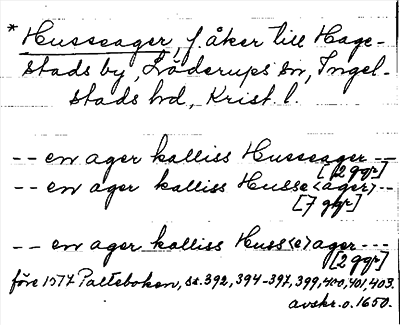 * Husseager, f. åker till Hage-
stads by, Löderups sn, Ingel-
stads hd, Krist. l.
-- en ager kalliss Husseager --
[2 ggr]
-- en ager kalliss Husse<ager> --
[7 ggr]
-- en ager kalliss Huss<e>ager ---
[2 ggr]
före 1577 Palteboken, ss. 392, 394-397, 399, 400, 401, 403.
avskr. o. 1650.